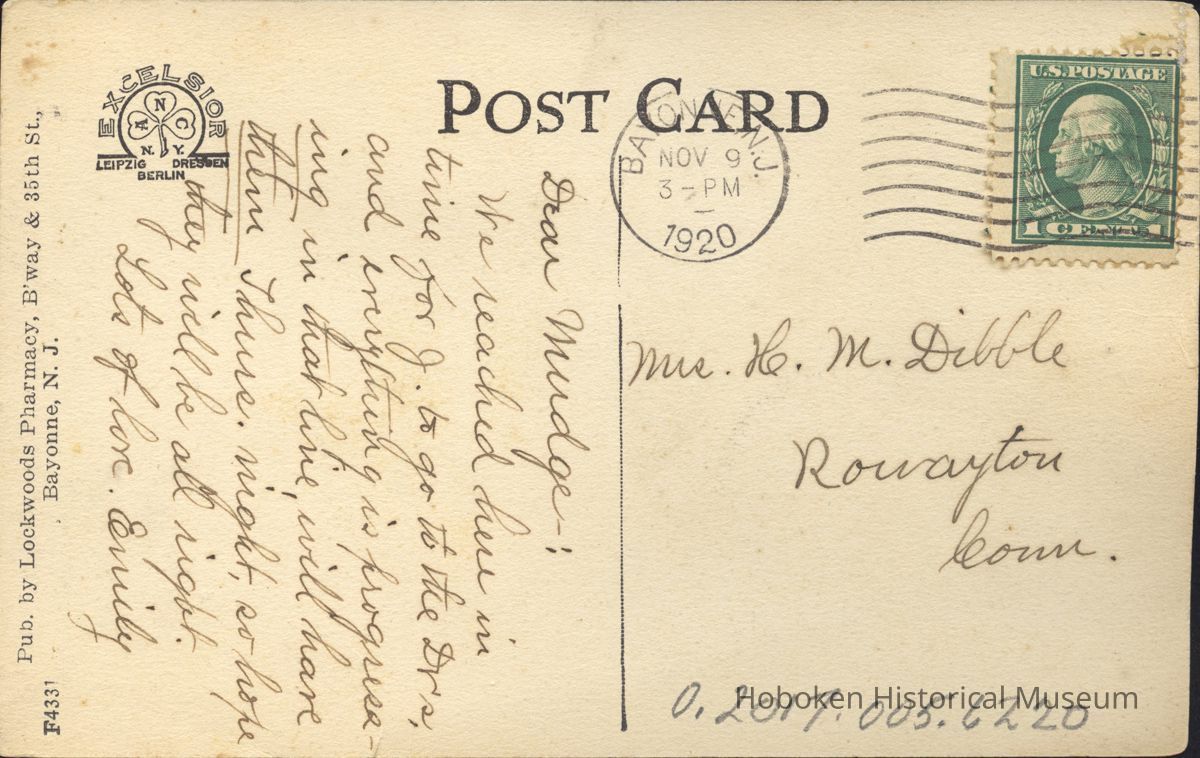 POST CARD
EXCELSIOR
A N C
N. Y.
LEIPZIG DRESDEN
BERLIN
BAYONNE, N.J.
NOV 9
3-PM
1920
U.S. POSTAGE
1 CENT 1
Dear Mudge-:
We reached here in
time for J. to go to the Dr's,
and everything is progress-
ing in that line, will have
them Thurs. night, so hope
they will be all right.
Lots of love. Emily
Mrs. H. M. Dibble
Rowayton
Conn.
Pub. by Lockwoods Pharmacy, B'way & 35th St.,
Bayonne, N. J.
F4331
Hoboken Historical Museum
0.2017.005.6220